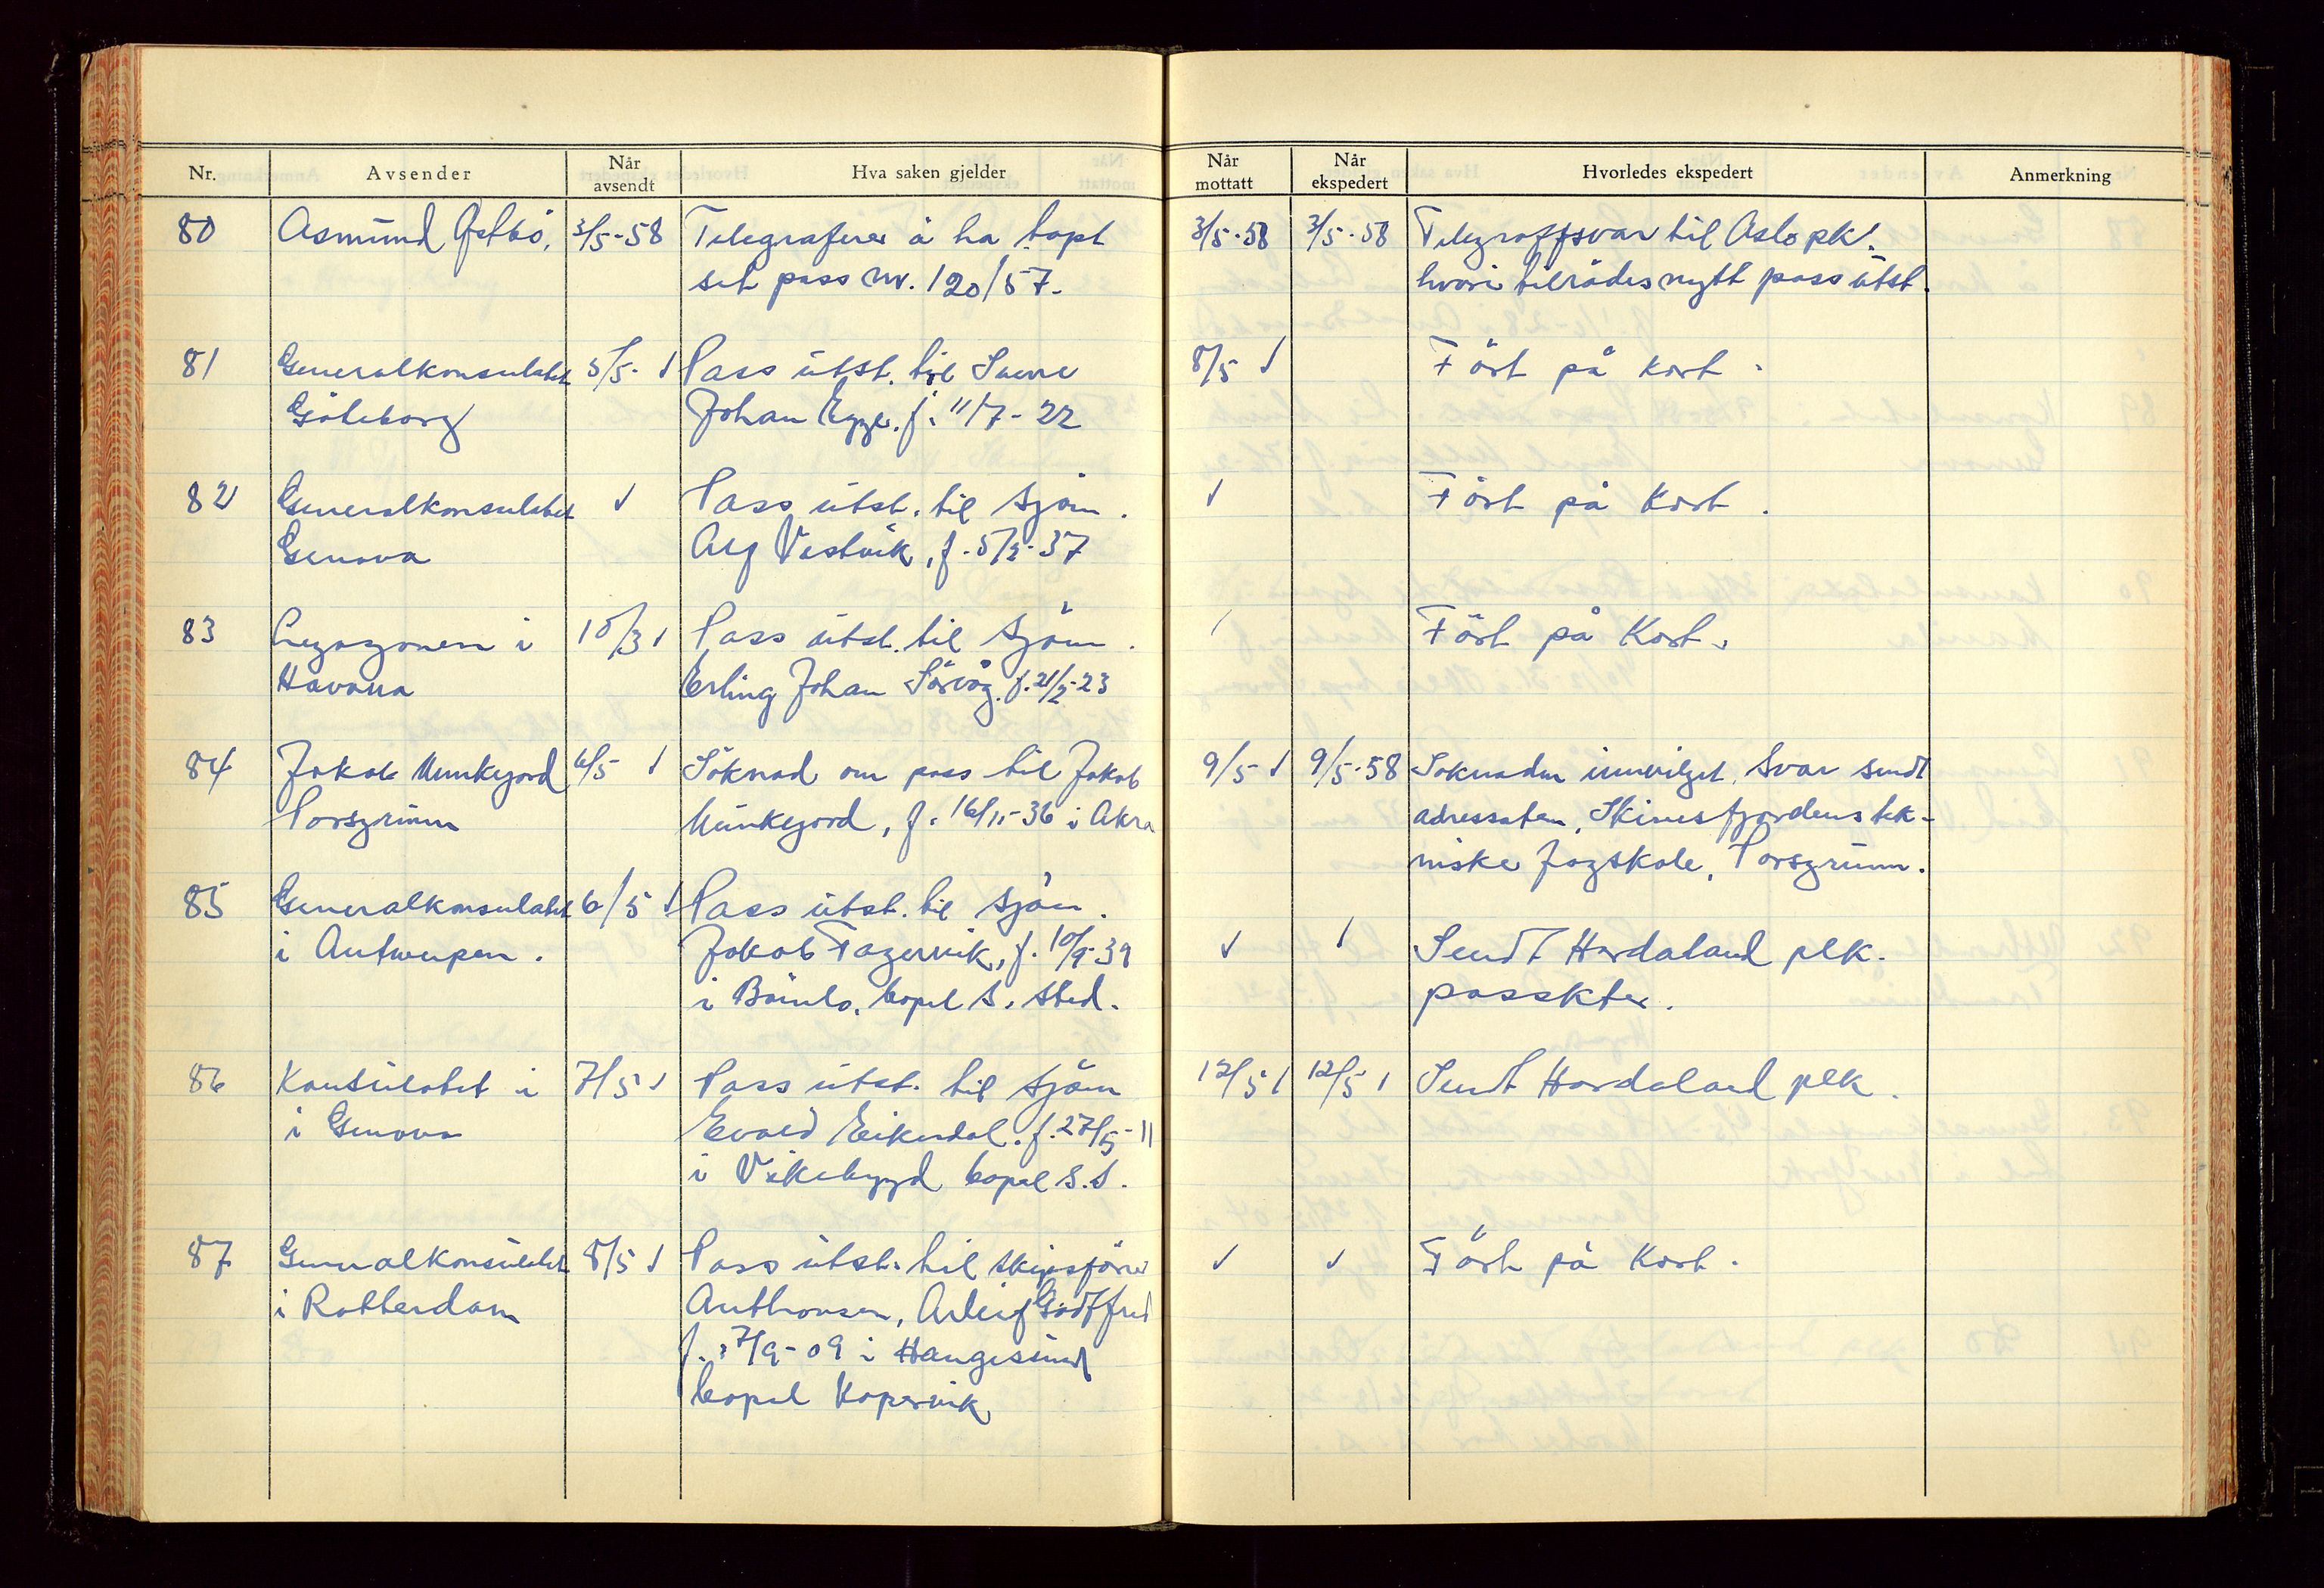 Nr. Avsender Når avsendt Hva saken gjelder Når mottatt Når ekspedert Hvorledes ekspedert Anmerkning
80 Asmund Østbö, 3/5-58 Telegraferer å ha tapt 3/5-58 3/5-58 Telegrafsvar til Oslo pk.
sit pass nr. 120/57. hvori tilrådes nytt pass utst.
81 Generalkonsulatet 5/5- √ Pass utst. til Sverre 8/5 √ Fört på kort.
Göteborg Johan Egge. f. 11/7-22
82 Generalkonsulatet √ Pass utst. til sjöm. √ Fört på Kort.
Genova Alf Vestvik, f. 5/2-37
83 Legasjonen i 10/3 √ Pass utst. til sjöm. √ Fört på Kort.
Havana Erling Johan Sörvåg. f. 21/2-23
84 Jakob Munkejord 6/5 √ Söknad om pass til Jakob 9/5 √ 9/5-58 Söknaden innvilget. Svar sendt
Porsgrunn Munkejord, f. 16/11-36 i Åkra adressaten, Skiensfjordens tek-
niske fagskole, Porsgrunn.
85 Generalkonsulatet 6/5 √ Pass utst. til sjöm.
i Antwerpen. Jakob Fagervik, f. 10/9-39 √ √ Sendt Hordaland plk.
i Bömlo, bopel s. sted. passkter.
86 Konsulatet i 7/5 √ Pass utst. til sjöm 12/5 √ 12/5 √ Sendt Hordaland plk.
i Genova Evald Eikesdal. f. 27/5-11
i Vikebygd bopel s.s.
87 Generalkonsulatet 8/5 √ Pass utst. til skipsförer √ √ Fört på Kort.
i Rotterdam Anthonsen, Arleif Godtfred
f. 7/9-09 i Haugesund
bopel Kopervik